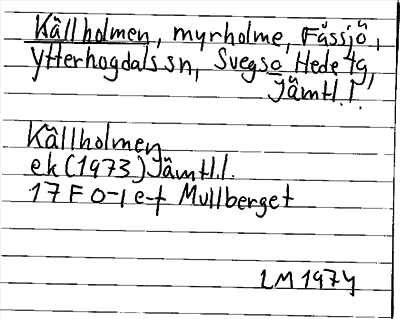 Källholmen, myrholme, Fåssjö,
Ytterhogdals sn, Svegs o Hede tg,
Jämtl. l.
Källholmen
ek (1973) Jämtl.l.
17 F 0-1 e-f Mullberget
LM 1974